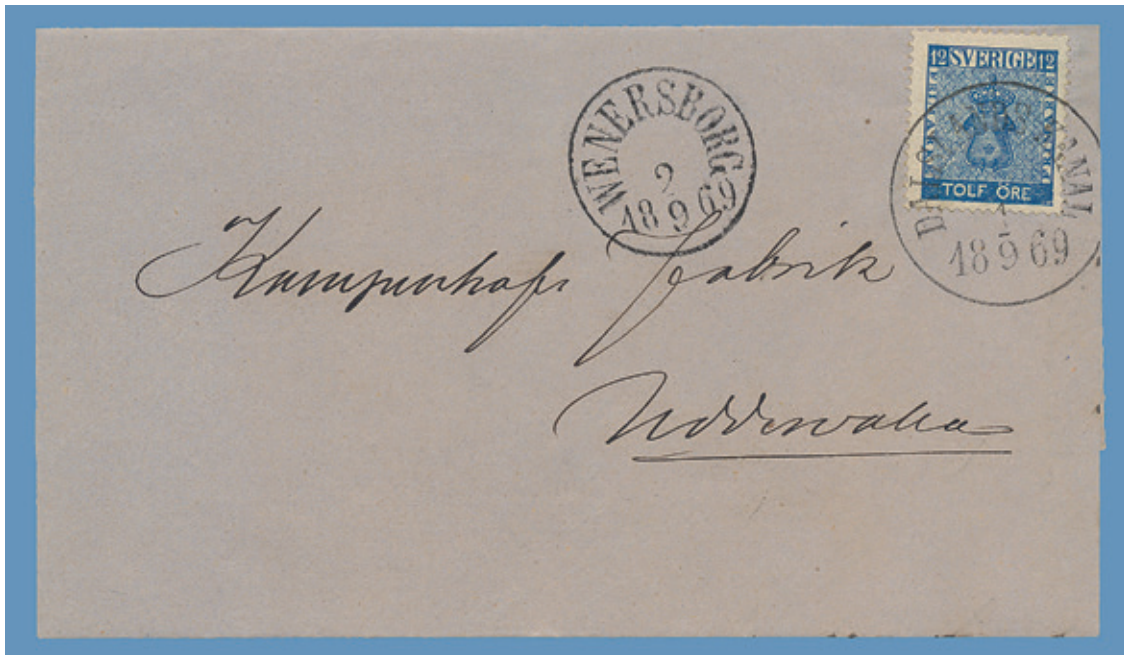 12 SVERIGE 12
TOLF ÖRE
DALSLANDS KANAL
1
18 9 69
WENERSBORG
9
18 9 69
Kampenhofs fabrik
Uddevalla